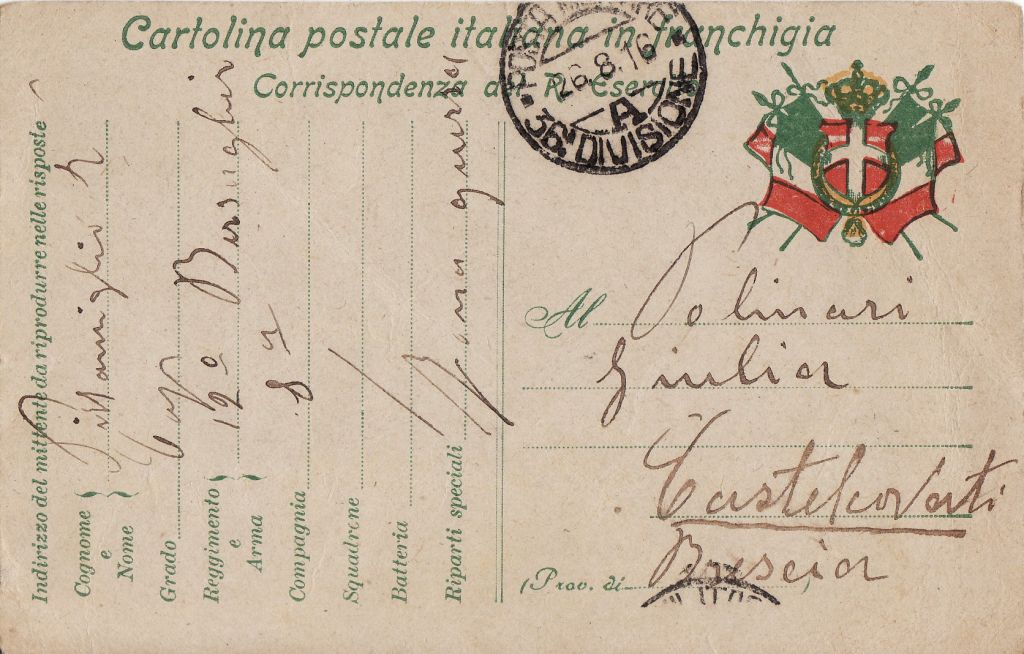 Cartolina postale italiana in franchigia
Corrispondenza del R. Esercito
POSTA MILITARE
26.8.16
A
36ª DIVISIONE
Indirizzo del mittente da riprodurre nelle risposte
Cognome e Nome
Grado
Reggimento e Arma 12º Bersaglieri
Compagnia 8ª
Squadrone
Batteria
Riparti speciali Zona guerra
Al Polinari
Giulia
Castelcovati
(Prov. di Brescia )